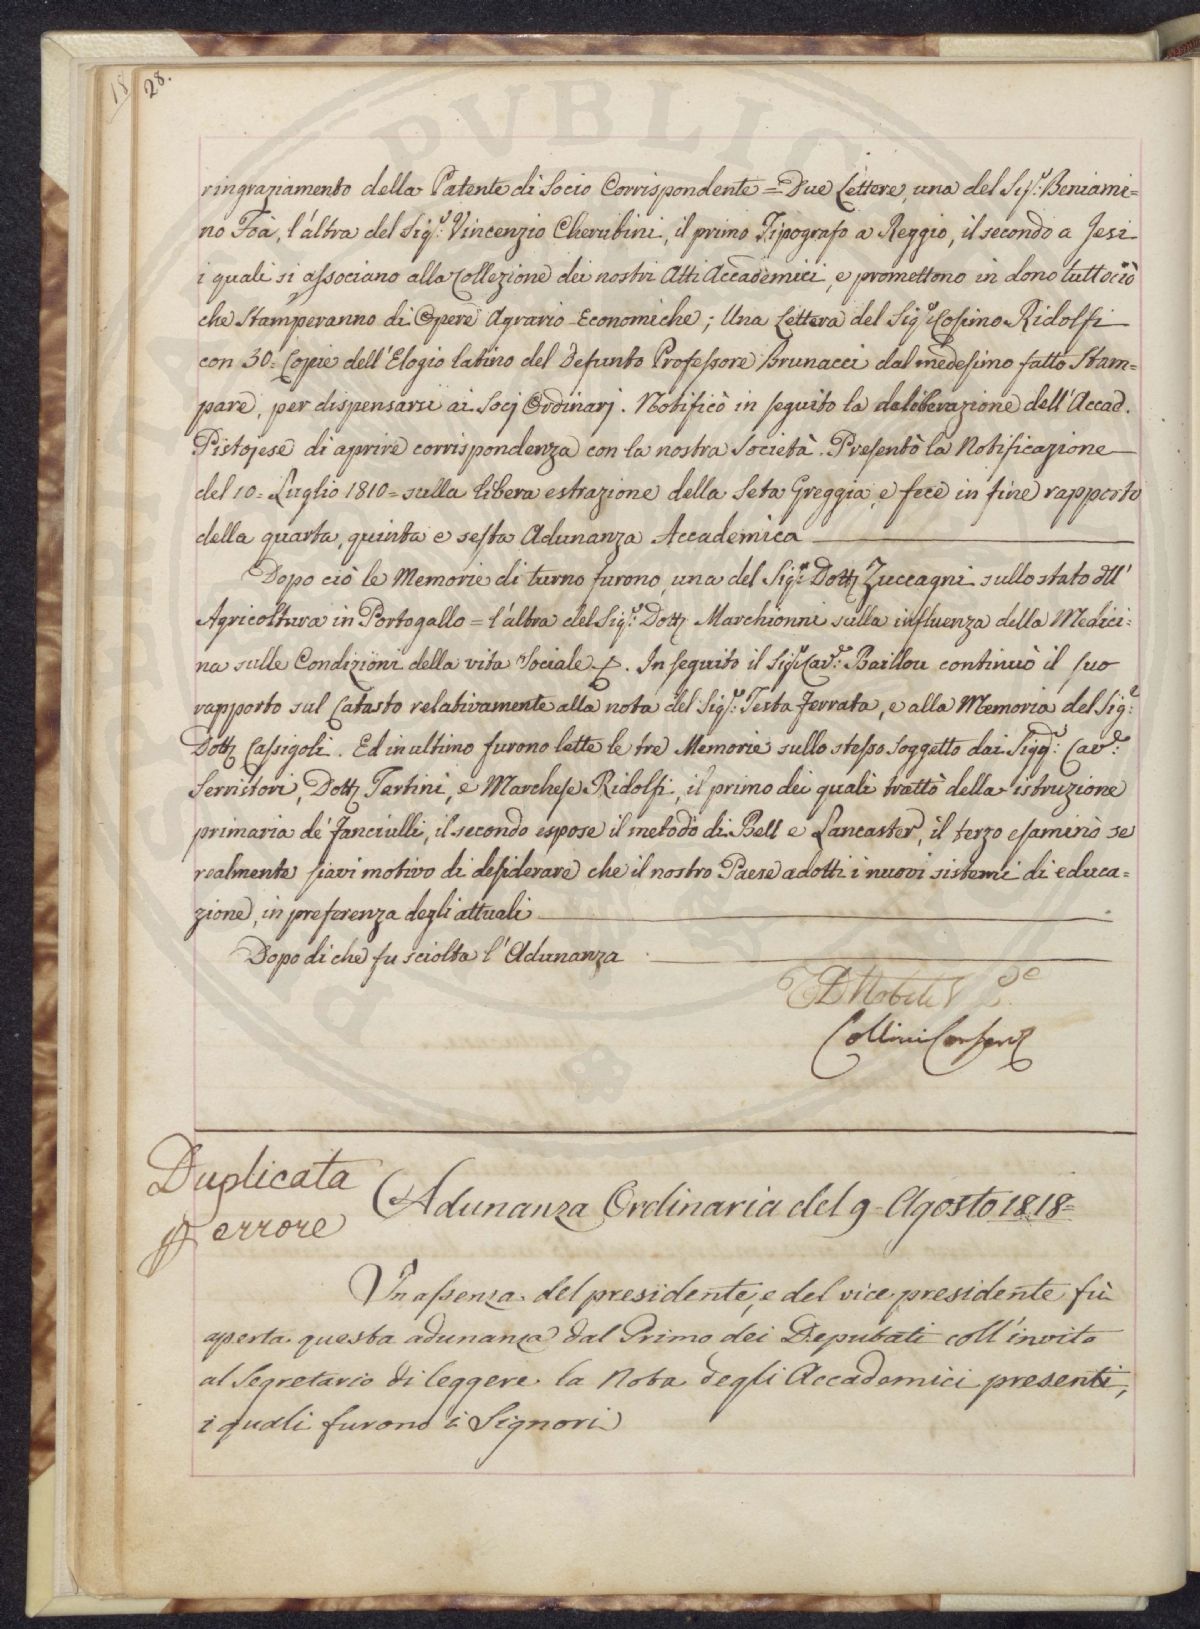 18
28.
ringraziamento della Patente di Socio Corrispondente = Due Lettere, una del Sig.r Beniami=
no Foà, l'altra del Sig.r Vincenzio Cherubini, il primo Tipografo a Reggio, il secondo a Jesi
i quali si associano alla Collezione dei nostri Atti Accademici, e promettono in dono tuttociò
che Stamperanno di Opere Agrario-Economiche; Una Lettera del Sig.r Cosimo Ridolfi
con 30= Copie dell'Elogio latino del defunto Professore Brunacci dal medesimo fatto Stam=
pare, per dispensarsi ai Socj Ordinarj. Notificò in seguito la deliberazione dell'Accad.
Pistojese di aprire corrispondenza con la nostra Società. Presentò la Notificazione
del 10= Luglio 1810= sulla libera estrazione della Seta Greggia, e fece in fine rapporto
della quarta, quinta e sesta Adunanza Accademica
Dopo ciò le Memorie di turno furono, una del Sig.r Dott. Zuccagni sullo stato dll'
Agricoltura in Portogallo = l'altra del Sig.r Dott. Marchionni sulla influenza della Medici=
na sulle Condizioni della vita Sociale. In seguito il Sig.r Cav.e Baillou continuò il suo
rapporto sul Catasto relativamente alla nota del Sig.r Testa Ferrata, e alla Memoria del Sig.r
Dott. Cassigoli. Ed in ultimo furono lette le tre Memorie sullo stesso soggetto dai Sigg.ri Cav.e
Serristori, Dott. Tartini, e Marchese Ridolfi, il primo dei quali trattò della istruzione
primaria de' Fanciulli, il secondo espose il metodo di Bell e Lancaster, il terzo esaminò se
realmente siavi motivo di desiderare che il nostro Paese adotti i nuovi sistemi di educa=
zione, in preferenza degli attuali
Dopo di chè fu sciolta l'Adunanza
Nobili V. P.e
Collini
Duplicata
p errore
Adunanza Ordinaria del 9 Agosto 1818=
In assenza del presidente, e del vice presidente fù
aperta questa adunanza dal Primo dei Deputati coll'invito
al Segretario di leggere la Nota degli Accademici presenti,
i quali furono i Signori